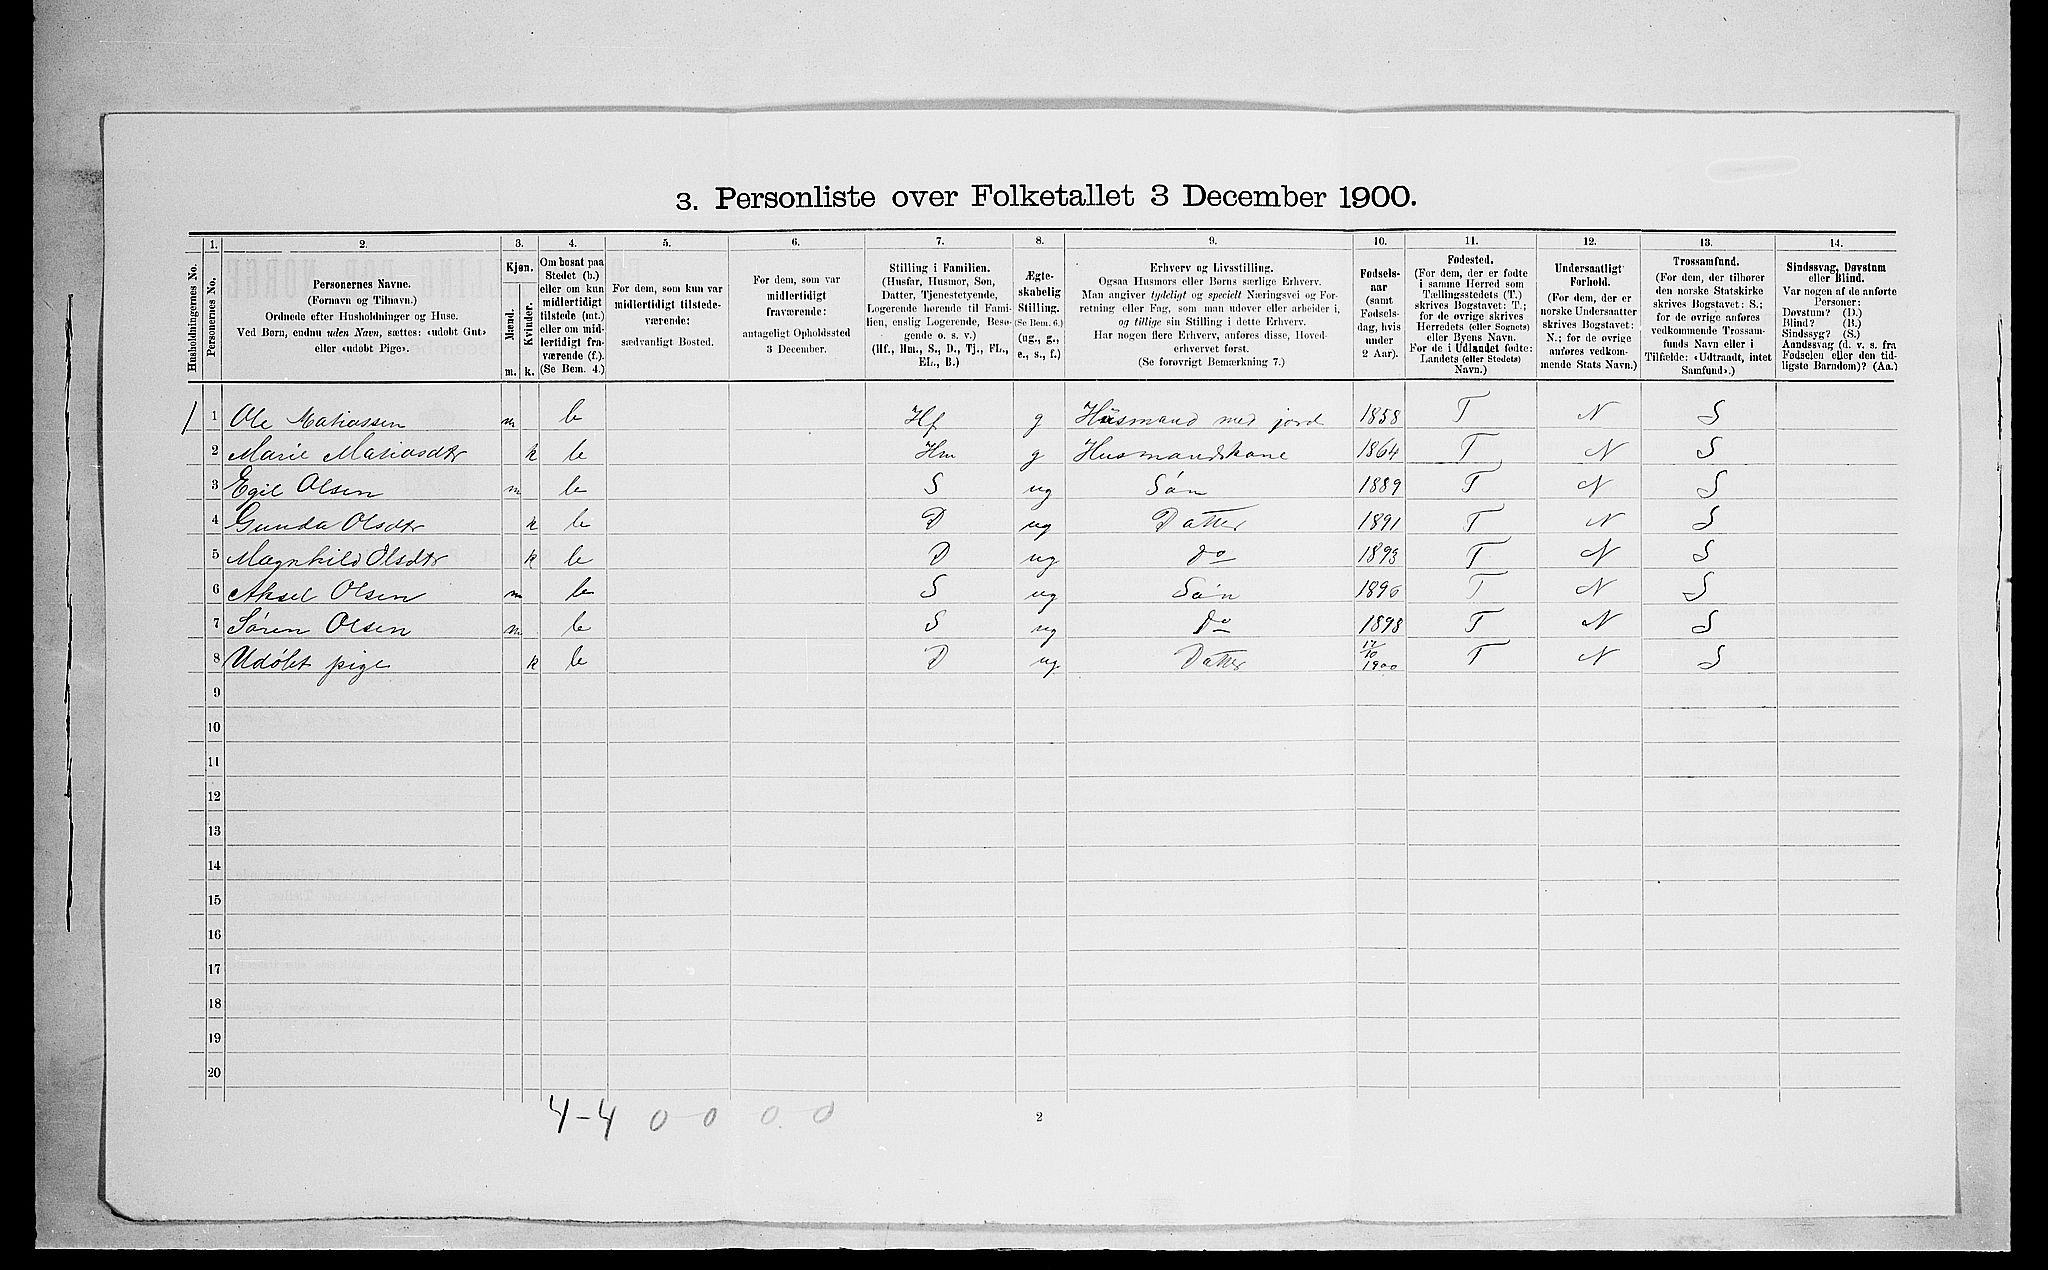 3. Personliste over Folketallet 3 December 1900.
1. 2. 3. 4. 5. 6. 7. 8. 9. 10. 11. 12. 13. 14.
Husholdningernes No.
Personernes No.
Personernes Navne.
(Fornavn og Tilnavn.)
Ordnede efter Husholdninger og Huse.
Ved Børn, endnu uden Navn, sættes: «udøbt Gut»
eller «udøbt Pige».
Kjøn.
Mænd.
Kvinder.
m. k.
Om bosat paa
Stedet (b.)
eller om kun
midlertidigt
tilstede (mt.)
eller om mid-
lertidigt fra-
værende (f.).
(Se Bem. 4.)
For dem, som kun var
midlertidigt tilstede-
værende:
sædvanligt Bosted.
For dem, som var
midlertidigt
fraværende:
antageligt Opholdssted
3 December.
Stilling i Familien.
(Husfar, Husmor, Søn,
Datter, Tjenestetyende,
Logerende hørende til Fami-
lien, enslig Logerende, Besø-
gende o. s. v.)
(Hf., Hm., S., D., Tj., FL.,
EL., B.)
Ægte-
skabelig
Stilling.
(Se Bem. 6.)
(ug., g.,
e., s., f.)
Erhverv og Livsstilling.
Ogsaa Husmors eller Børns særlige Erhverv.
Man angiver tydeligt og specielt Næringsvei og For-
retning eller Fag, som man udøver eller arbeider i,
og tillige sin Stilling i dette Erhverv.
Har nogen flere Erhverv, anføres disse, Hoved-
erhvervet først.
(Se forøvrigt Bemærkning 7.)
Fødsels-
aar
(samt
Fødsels-
dag, hvis
under
2 Aar).
Fødested.
(For dem, der er fødte
i samme Herred som
Tællingsstedets (T.)
skrives Bogstavet: T.;
for de øvrige skrives
Herredets (eller Sognets)
eller Byens Navn.
For de i Udlandet fødte:
Landets (eller Stedets)
Navn.)
Undersaatligt
Forhold.
(For dem, der er
norske Undersaatter
skrives Bogstavet:
N.; for de øvrige
anføres vedkom-
mende Stats Navn.)
Trossamfund.
(For dem, der tilhører
den norske Statskirke
skrives Bogstavet: S.;
for de øvrige anføres
vedkommende Trossam-
funds Navn eller i
Tilfælde: «Udtraadt, intet
Samfund».)
Sindssvag, Døvstum
eller Blind.
Var nogen af de anførte
Personer:
Døvstum? (D.)
Blind? (B.)
Sindssyg? (S.)
Aandssvag (d. v. s. fra
Fødselen eller den tid-
ligste Barndom)? (Aa.)
1 1 Ole Matiassen m b Hf g Husmand med jord 1858 T N S
2 Marie Matiasdtr k b Hm g Husmandskone 1864 T N S
3 Egil Olsen m b S ug Søn 1889 T N S
4 Gunda Olsdtr k b D ug Datter 1891 T N S
5 Magnhild Olsdtr k b D ug do 1893 T N S
6 Aksel Olsen m b S ug Søn 1896 T N S
7 Søren Olsen m b S ug do 1898 T N S
8 Udøbt pige k b D ug. Datter 17/10 1900 T N S
9
10
11
12
13
14
15
16
17
18
19
20
4-4 0 0 0 0
2